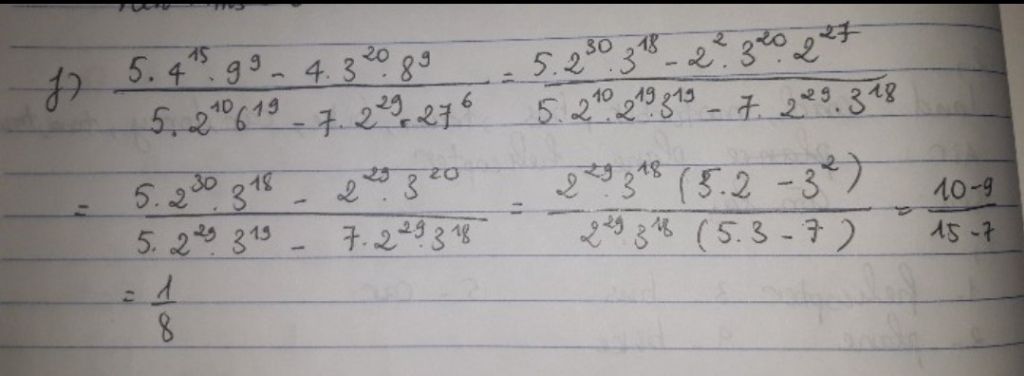 f) (5.4¹⁵.9⁹ - 4.3²⁰.8⁹)/(5.2¹⁰6¹⁹ - 7.2²⁹.27⁶) = (5.2³⁰.3¹⁸ - 2².3²⁰.2²⁷)/(5.2¹⁰.2¹⁹.3¹⁹ - 7.2²⁹.3¹⁸)
= (5.2³⁰.3¹⁸ - 2²⁹.3²⁰)/(5.2²⁹.3¹⁹ - 7.2²⁹.3¹⁸) = (2²⁹3¹⁸(5.2 - 3²))/(2²⁹.3¹⁸(5.3 - 7)) = (10-9)/(15-7)
= 1/8